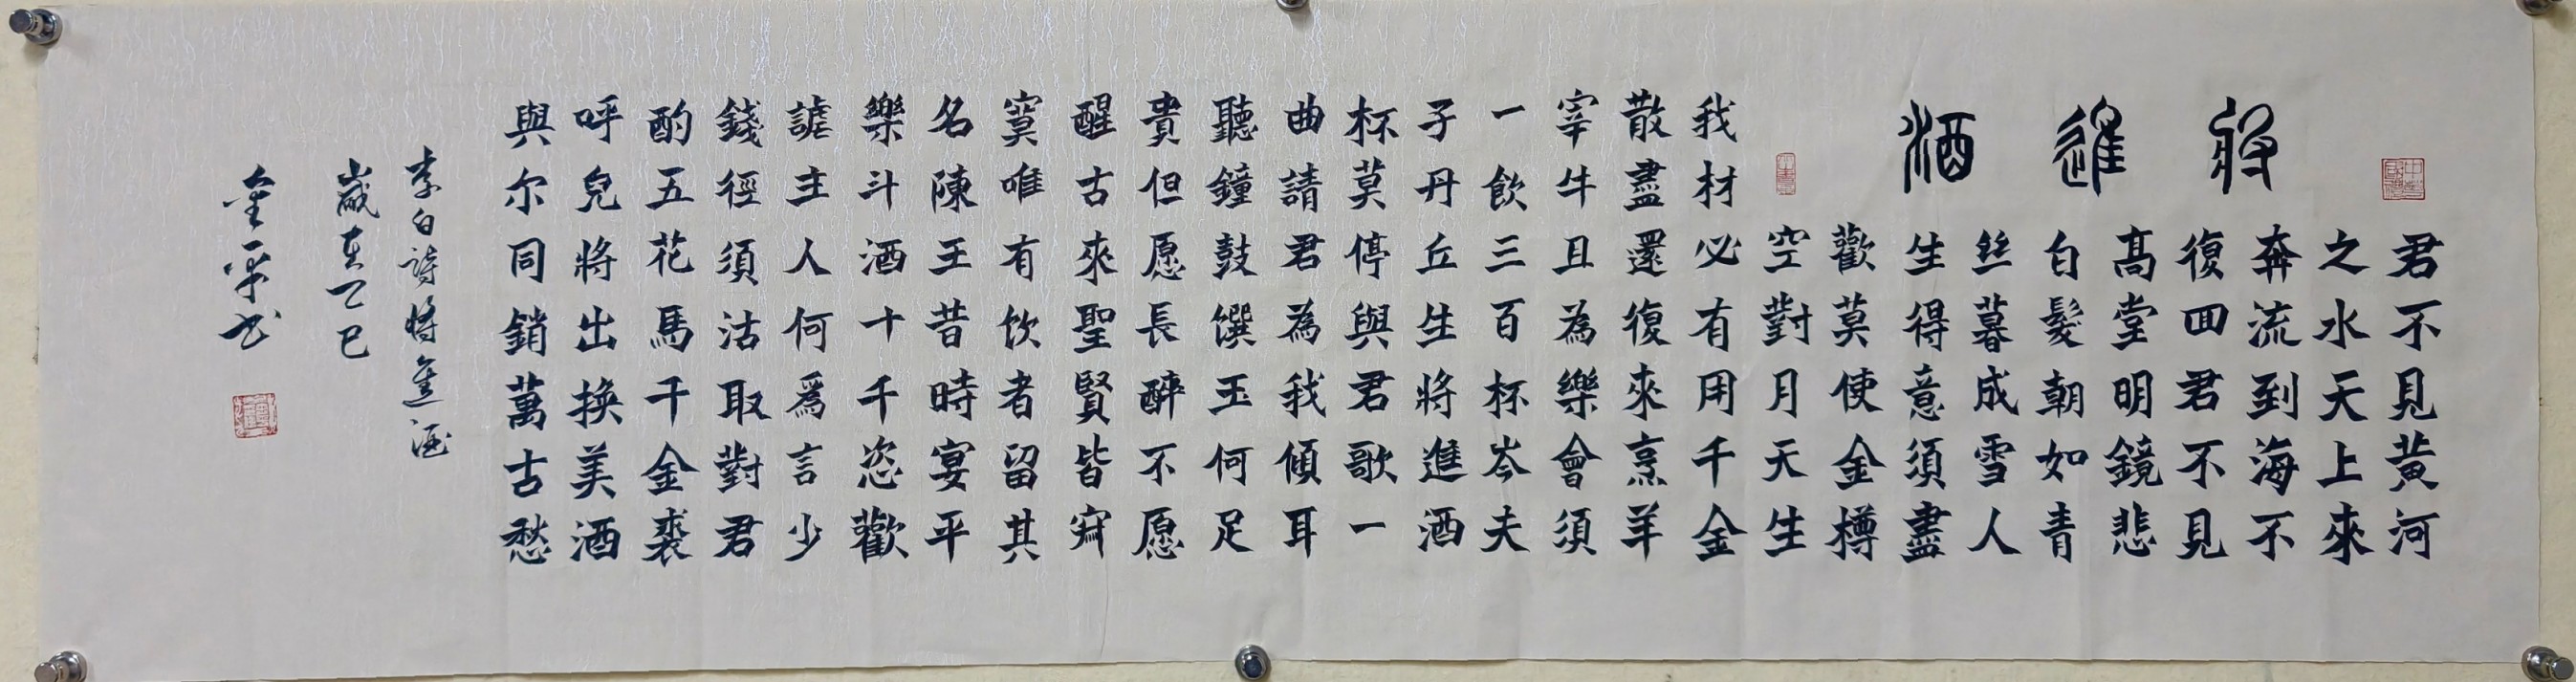 將進酒
君不見黃河
之水天上來
奔流到海不
復囬君不見
高堂明鏡悲
白髮朝如青
丝暮成雪人
生得意須盡
歡莫使金樽
空對月天生
我材必有用千金
散盡還復來烹羊
宰牛且為樂會須
一飲三百杯岑夫
子丹丘生將進酒
杯莫停與君歌一
曲請君為我傾耳
聽鐘鼓馔玉何足
貴但愿長醉不愿
醒古來聖賢皆寂
寞唯有饮者留其
名陳王昔時宴平
樂斗酒十千恣歡
謔主人何爲言少
錢徑須沽取對君
酌五花馬千金裘
呼兒將出換美酒
與尔同銷萬古愁
李白詩將進酒
歲在乙巳
金平书